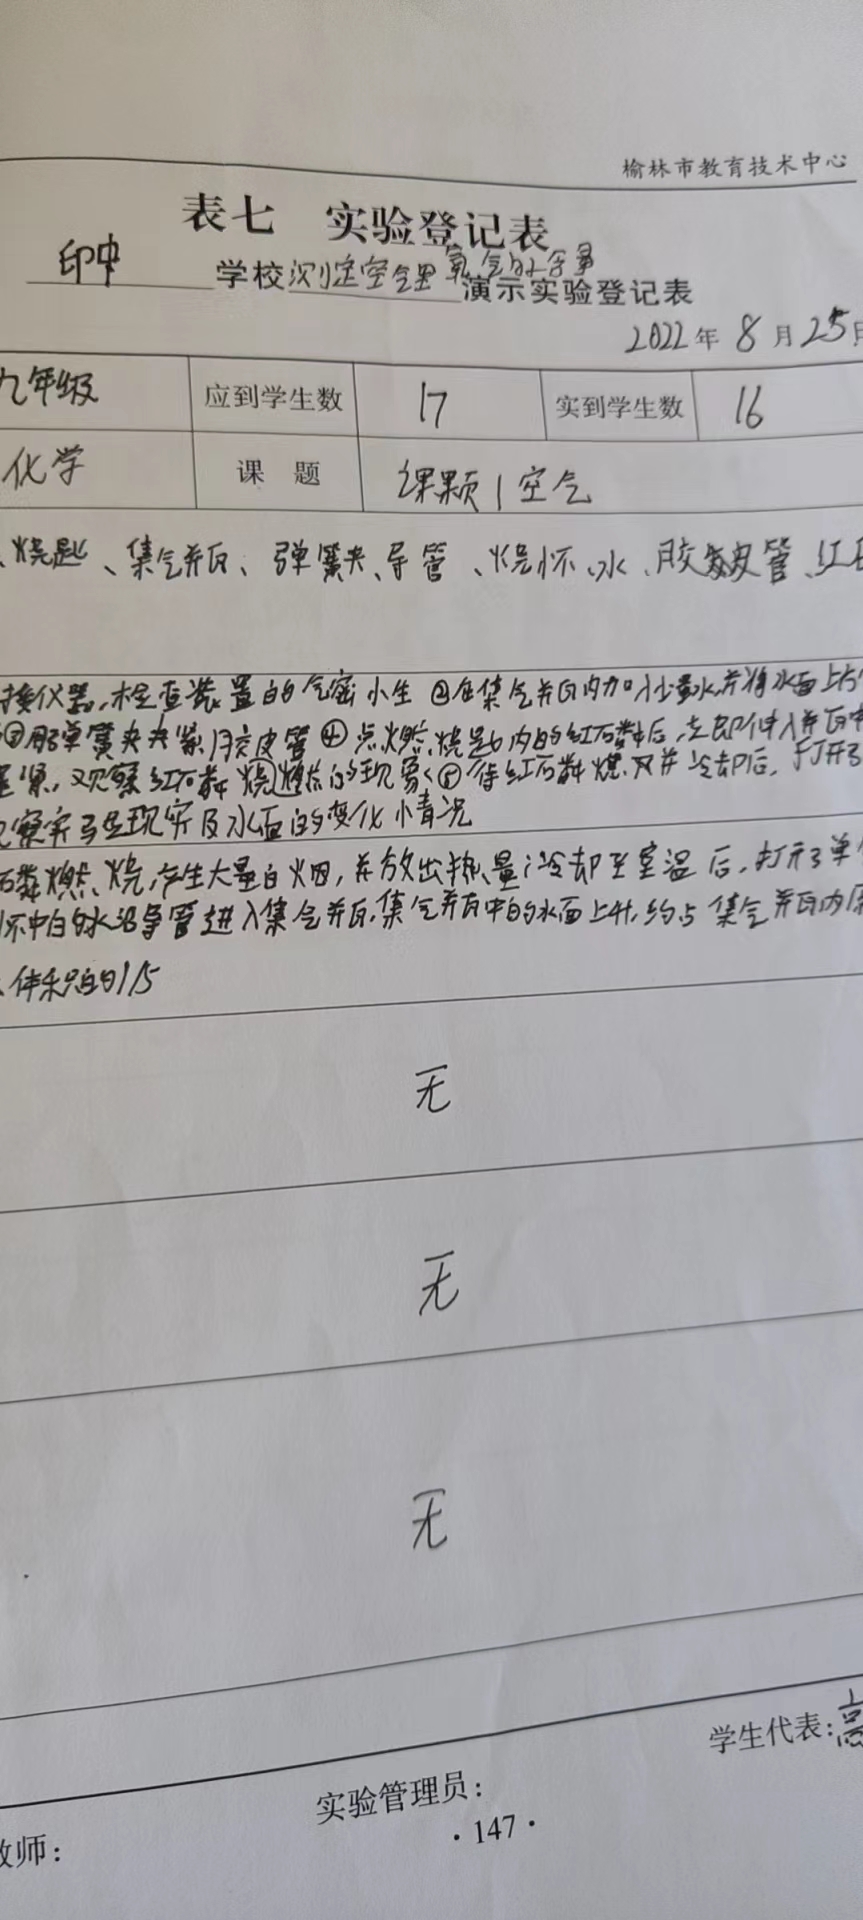 榆林市教育技术中心
表七 实验登记表
印中 学校测定空气里氧气的含量演示实验登记表
2022年8月25日
九年级 应到学生数 17 实到学生数 16
化学 课题 课题1空气
烧匙、集气瓶、弹簧夹、导管、烧杯、水、胶皮管、红
接仪器,检查装置的气密小生②在集气瓶内加入少量水,并将水面上方
③用弹簧夹夹紧胶皮管④点燃烧匙内的红磷后,立即伸入瓶中
塞紧,观察红磷燃烧的现象⑤待红磷熄灭并冷却后,打开
观察实验现实及水面的变化情况
磷燃烧,产生大量白烟,并放出热量;冷却至室温后,打开弹
杯中的水沿导管进入集气瓶,集气瓶中的水面上升,约占集气瓶内原
体积的1/5
无
无
无
学生代表:高
实验管理员:
教师:
·147·